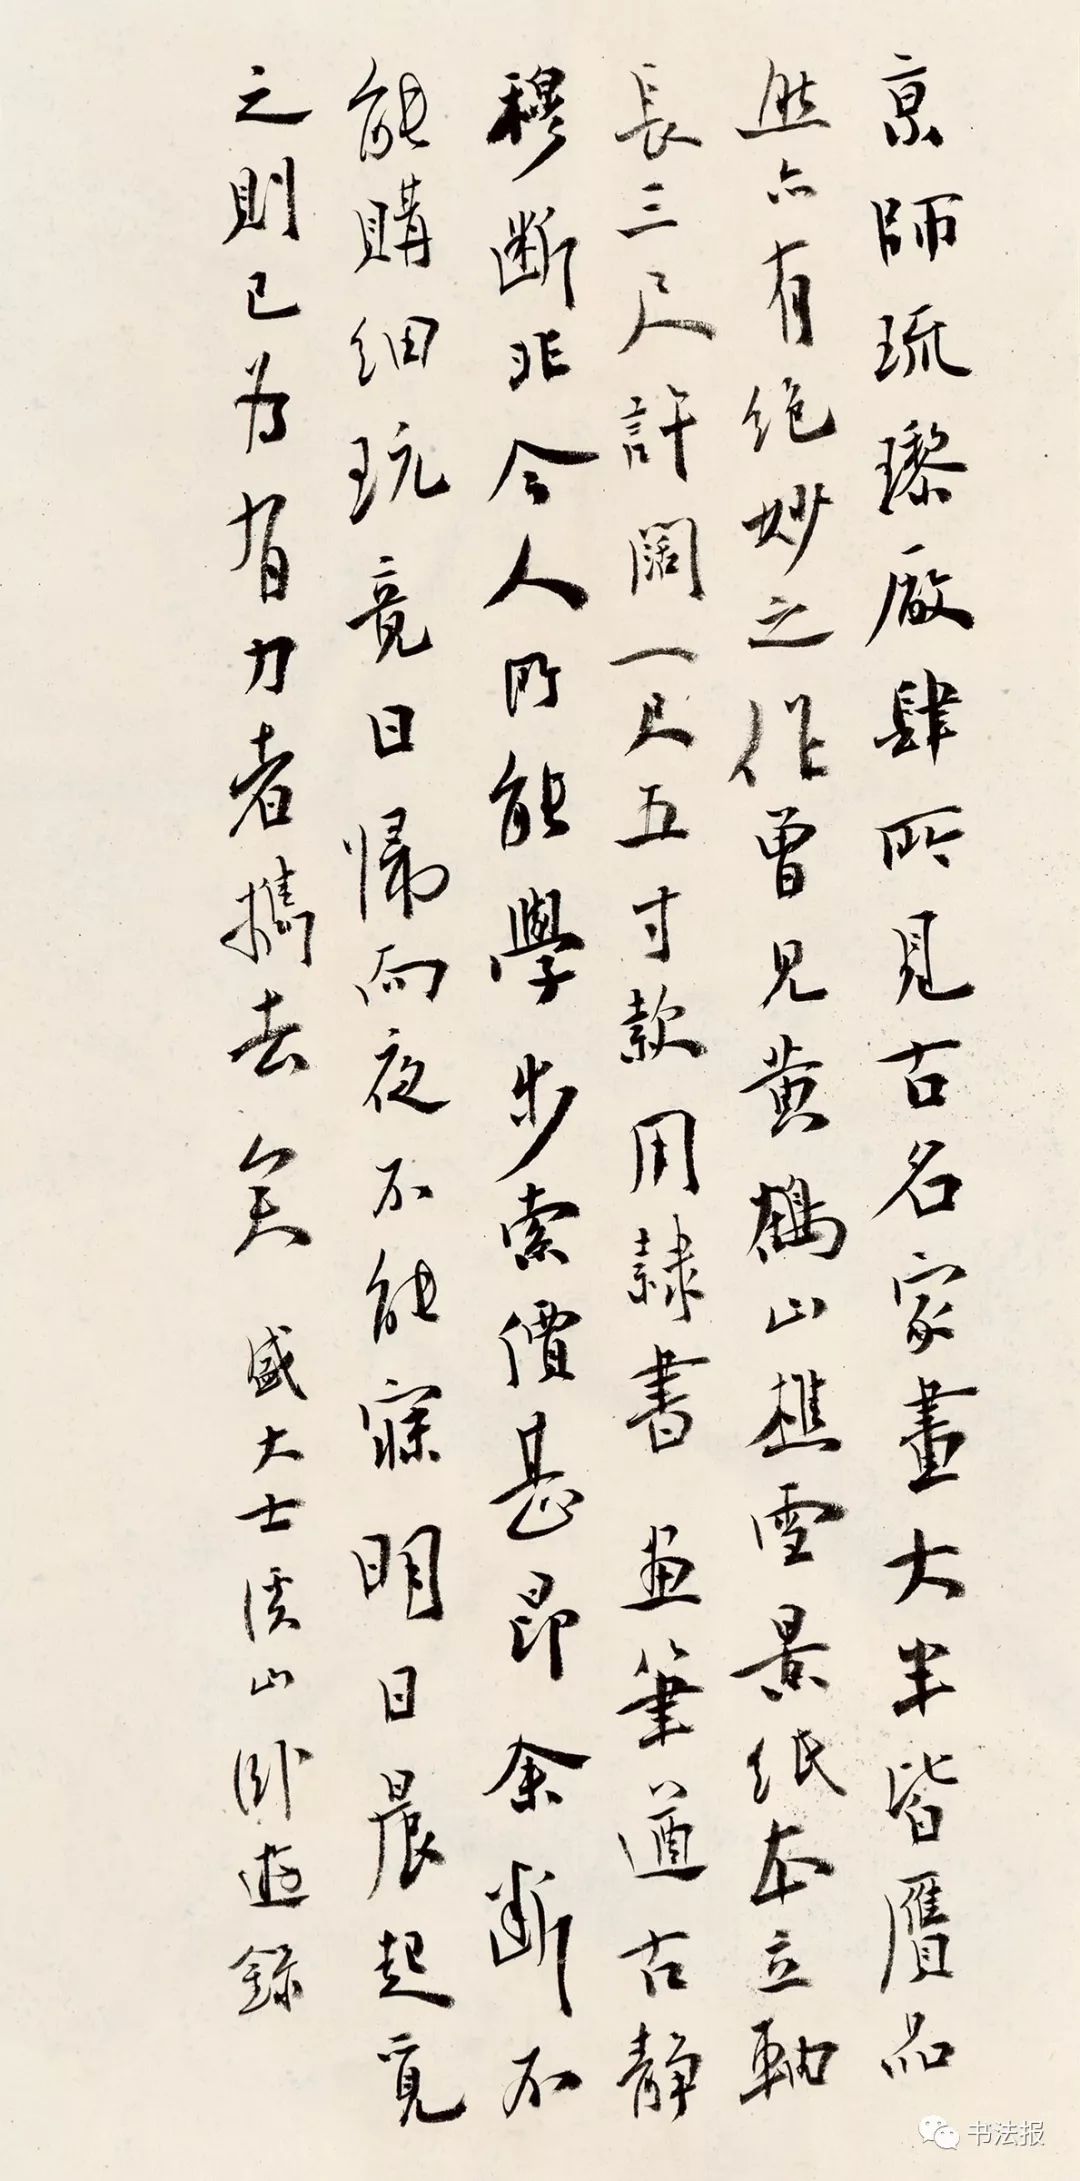 京師琉瓈廠肆所見古名家畫大半皆贋品
然亦有绝妙之作曾見黄鶴山樵雪景纸本立軸
長三尺許闊一尺五寸款用隷書画筆遒古静
穆斷非今人所能學步索價甚昂余断不
能購细玩竟日歸而夜不能寐明日晨起覓
之則已为有力者攜去矣 盛大士溪山卧遊錄
书法报